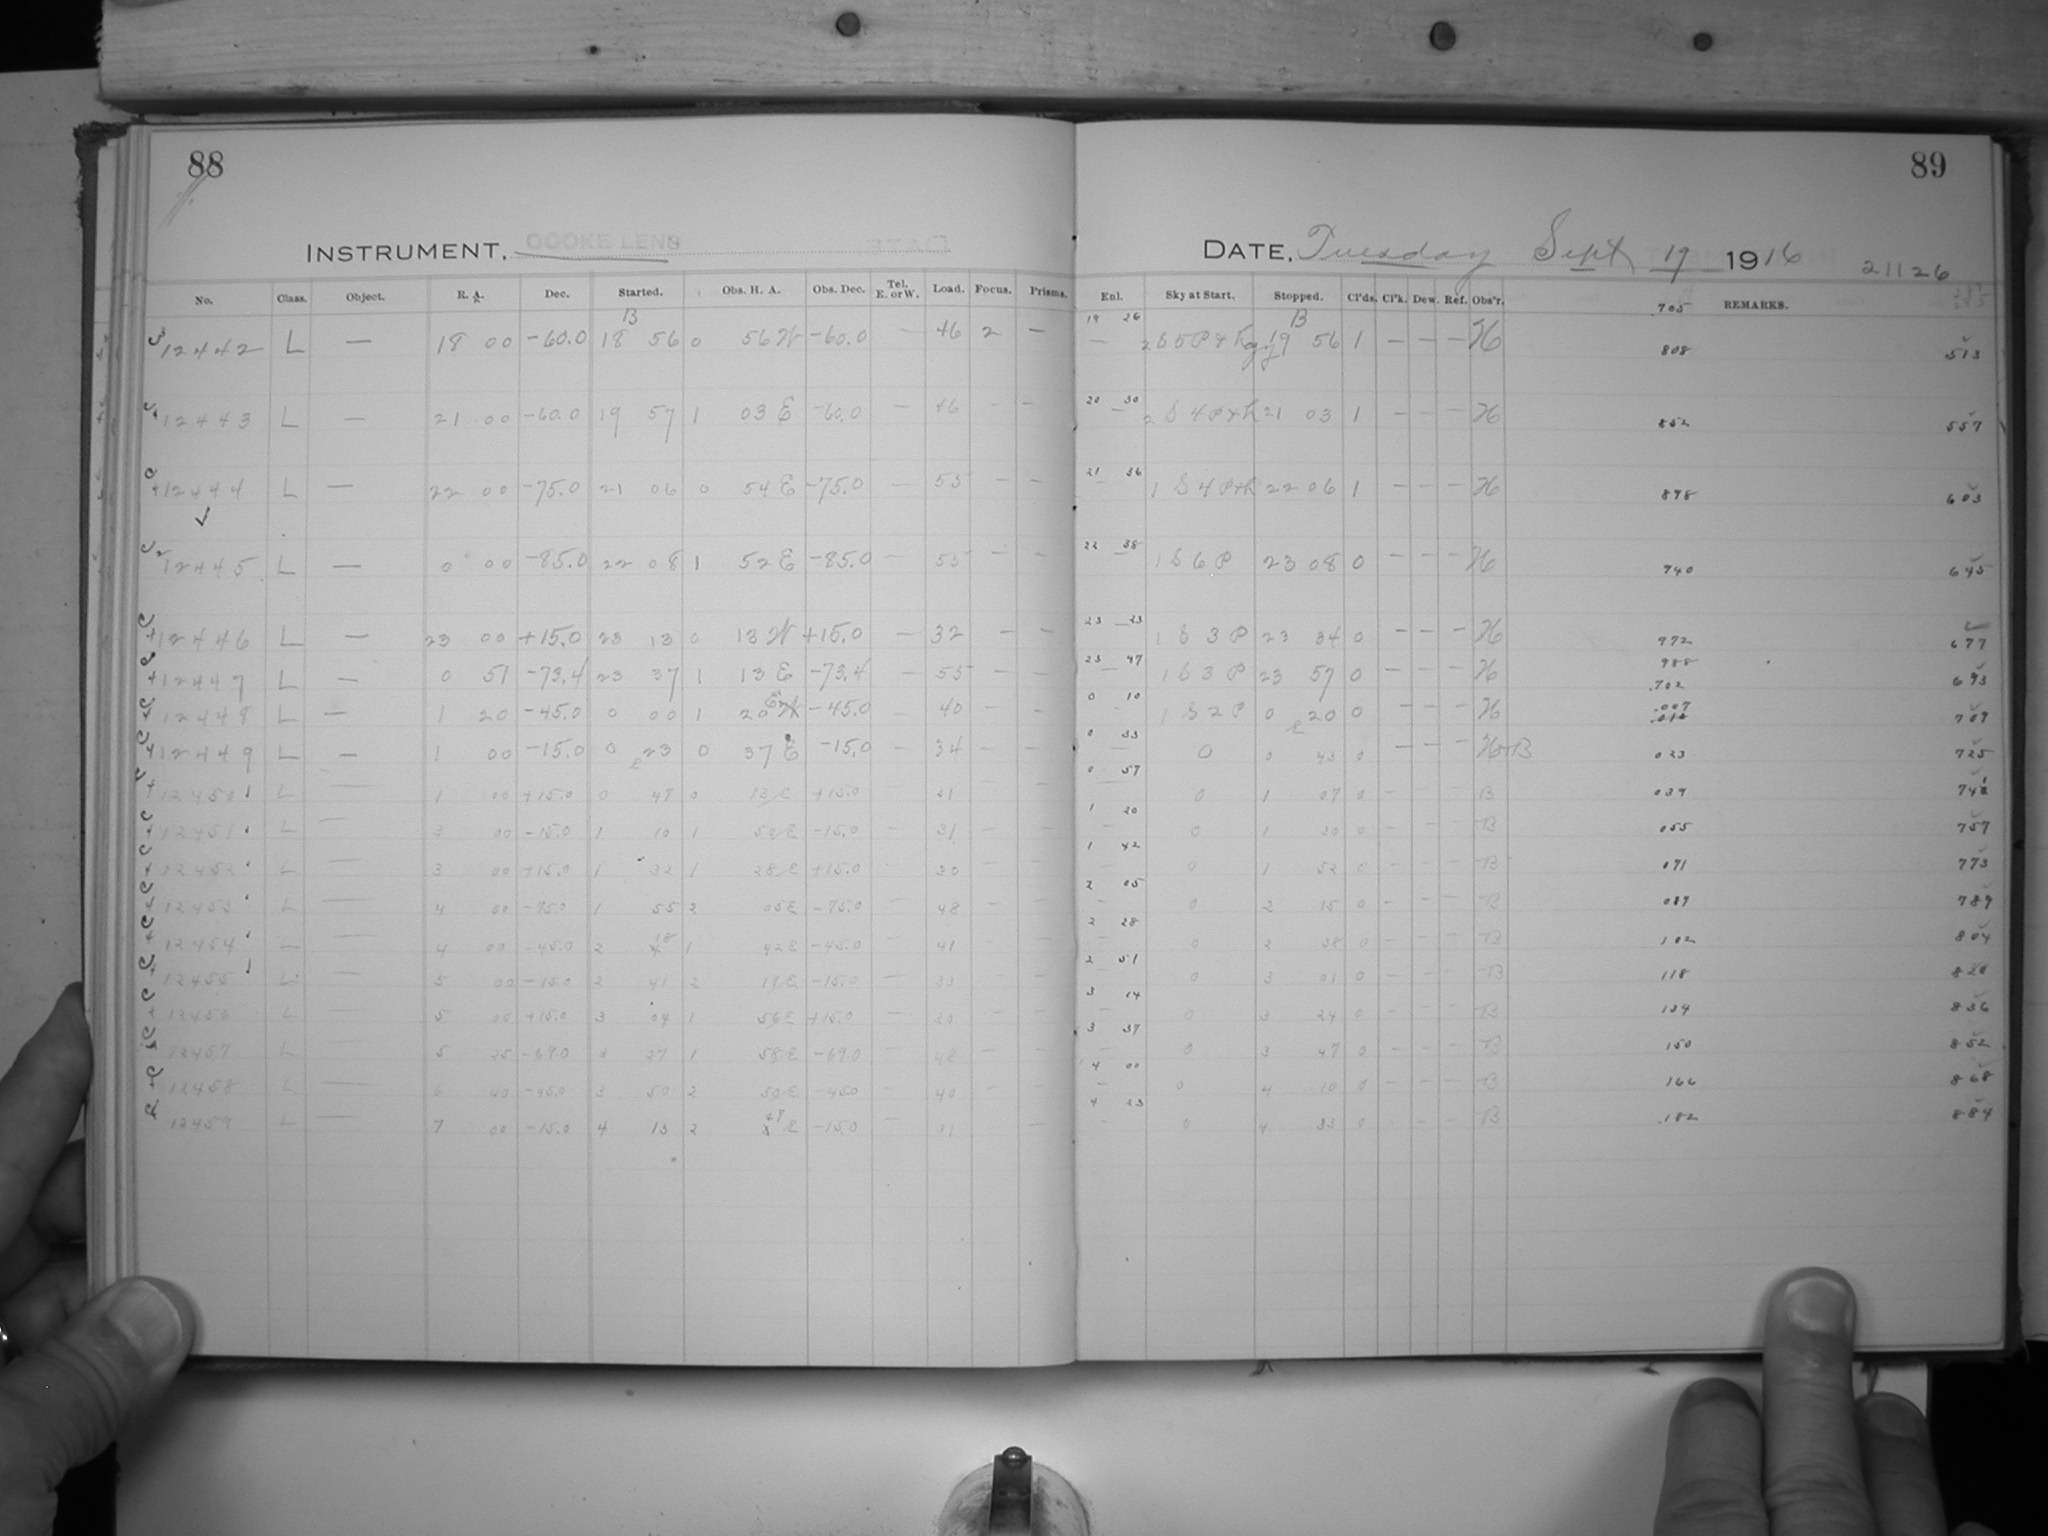 88
89
INSTRUMENT. COOKE LENS
DATE. Tuesday Sept 19 1916 21126
No. Class. Object. R. A. Dec. Started. Obs. H. A. Obs. Dec. Tel. E. or W. Load. Focus. Prisms. Enl. Sky at Start. Stopped. Cl'ds. Cl'k. Dew. Ref. Obs'r. REMARKS.
705
B B 19 26
12442 L — 18 00 -60.0 18 56 0 56 W -60.0 — 46 2 — — 19 56 1 — — — H 808 513
20 30
12443 L — 21 00 -60.0 19 57 1 03 E -60.0 — 46 — — — 21 03 1 — — — H 852 557
21 36
12444 L — 22 00 -75.0 21 06 0 54 E -75.0 — 55 — — — 22 06 1 — — — H 898 603
22 38
12445 L — 0 00 -85.0 22 08 1 52 E -85.0 — 55 — — — 1 S 6 P 23 08 0 — — — H 940 645
23 23
12446 L — 23 00 +15.0 23 13 0 13 W +15.0 — 32 — — 1 S 3 P 23 34 0 — — — H 972 677
23 47 988
12447 L — 0 51 -73.4 23 37 1 13 E -73.4 — 55 — — — 1 S 3 P 23 57 0 — — — H 693
0 10 .702
12448 L — 1 20 -45.0 0 00 1 20 E -45.0 — 40 — — 1 S 2 P 0 20 0 — — — H .007 709
0 33
12449 L — 1 00 -15.0 0 23 0 37 E -15.0 — 34 — — 0 0 43 0 — — — H+B 023 725
0 57
12450 L — 1 00 +15.0 0 47 0 13 E +15.0 — 31 — — 0 1 07 0 — — — B 039 741
1 20
12451 L — 3 00 -15.0 1 10 1 50 E -15.0 — 31 — — 0 1 30 0 — — — B 055 757
1 42
12452 L — 3 00 +15.0 1 32 1 28 E +15.0 — 30 — — 0 1 52 0 — — — B 071 773
2 05
12453 L — 4 00 -75.0 1 55 2 05 E -75.0 — 48 — — 0 2 15 0 — — — B 087 789
2 28
12454 L — 4 00 -45.0 2 18 1 42 E -45.0 — 41 — — 0 2 38 0 — — — B 102 804
2 51
12455 L — 5 00 -15.0 2 41 2 19 E -15.0 — 33 — — 0 3 01 0 — — — B 118 820
3 14
12456 L — 5 00 +15.0 3 04 1 56 E +15.0 — 30 — — 0 3 24 0 — — — B 134 836
3 37
12457 L — 5 25 -69.0 3 27 1 58 E -69.0 — 48 — — 0 3 47 0 — — — B 150 852
4 00
12458 L — 6 40 -45.0 3 50 2 50 E -45.0 — 40 — — 0 4 10 0 — — — B 166 868
4 23
12459 L — 7 00 -15.0 4 13 2 E -15.0 — 31 — 0 4 33 0 — — — B .182 884